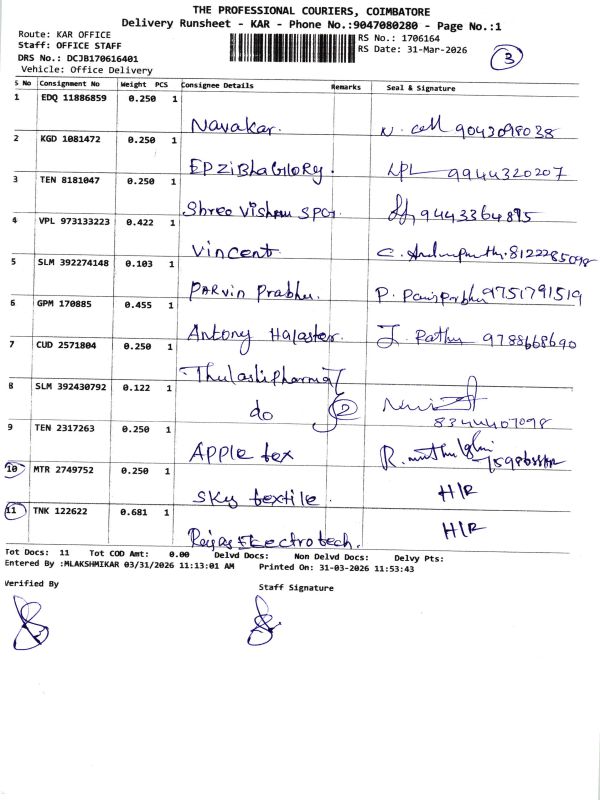 THE PROFESSIONAL COURIERS, COIMBATORE
Delivery Runsheet - KAR - Phone No.:9047080280 - Page No.:1
Route: KAR OFFICE
RS No.: 1706164
Staff: OFFICE STAFF
RS Date: 31-Mar-2026
3
DRS No.: DCJB170616401
Vehicle: Office Delivery
S No Consignment No Weight PCS Consignee Details Remarks Seal & Signature
1 EDQ 11886859 0.250 1
Navakar. N. cell 9043098038
2 KGD 1081472 0.250 1
EPZiBhaGlORy. 9944320207
3 TEN 8181047 0.250 1
Shree Vishnu SPG. 9443364815
4 VPL 973133223 0.422 1
Vincent 8122285098
5 SLM 392274148 0.103 1
PARvin Prabhu. P. 9751791519
6 GPM 170885 0.455 1
Antony Halaster. J. Rathy 9788668690
7 CUD 2571804 0.250 1
Thulasi pharmacy
8 SLM 392430792 0.122 1
do 2 8344407098
9 TEN 2317263 0.250 1
APPLE tex R.
10 MTR 2749752 0.250 1
Sky textile. H/R
11 TNK 122622 0.681 1
Electrotech. H/R
Tot Docs: 11 Tot COD Amt: 0.00 Delvd Docs: Non Delvd Docs: Delvy Pts:
Entered By :MLAKSHMIKAR 03/31/2026 11:13:01 AM Printed On: 31-03-2026 11:53:43
Verified By Staff Signature